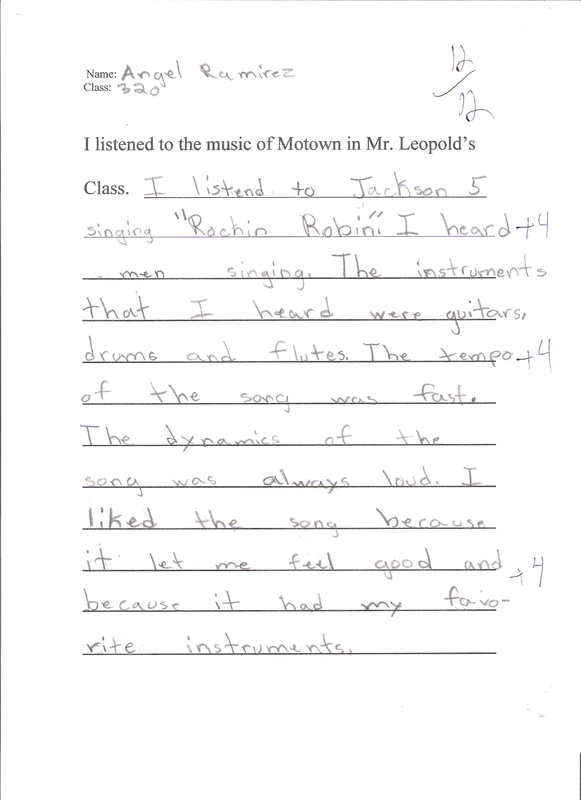 Name: Angel Ramirez
Class: 320
12/12
I listened to the music of Motown in Mr. Leopold's
Class. I listend to Jackson 5
singing "Rochin Robin". I heard +4
men singing. The instruments
that I heard were guitars,
drums and flutes. The tempo +4
of the song was fast.
The dynamics of the
song was always loud. I
liked the song because
it let me feel good and +4
because it had my favo-
rite instruments.